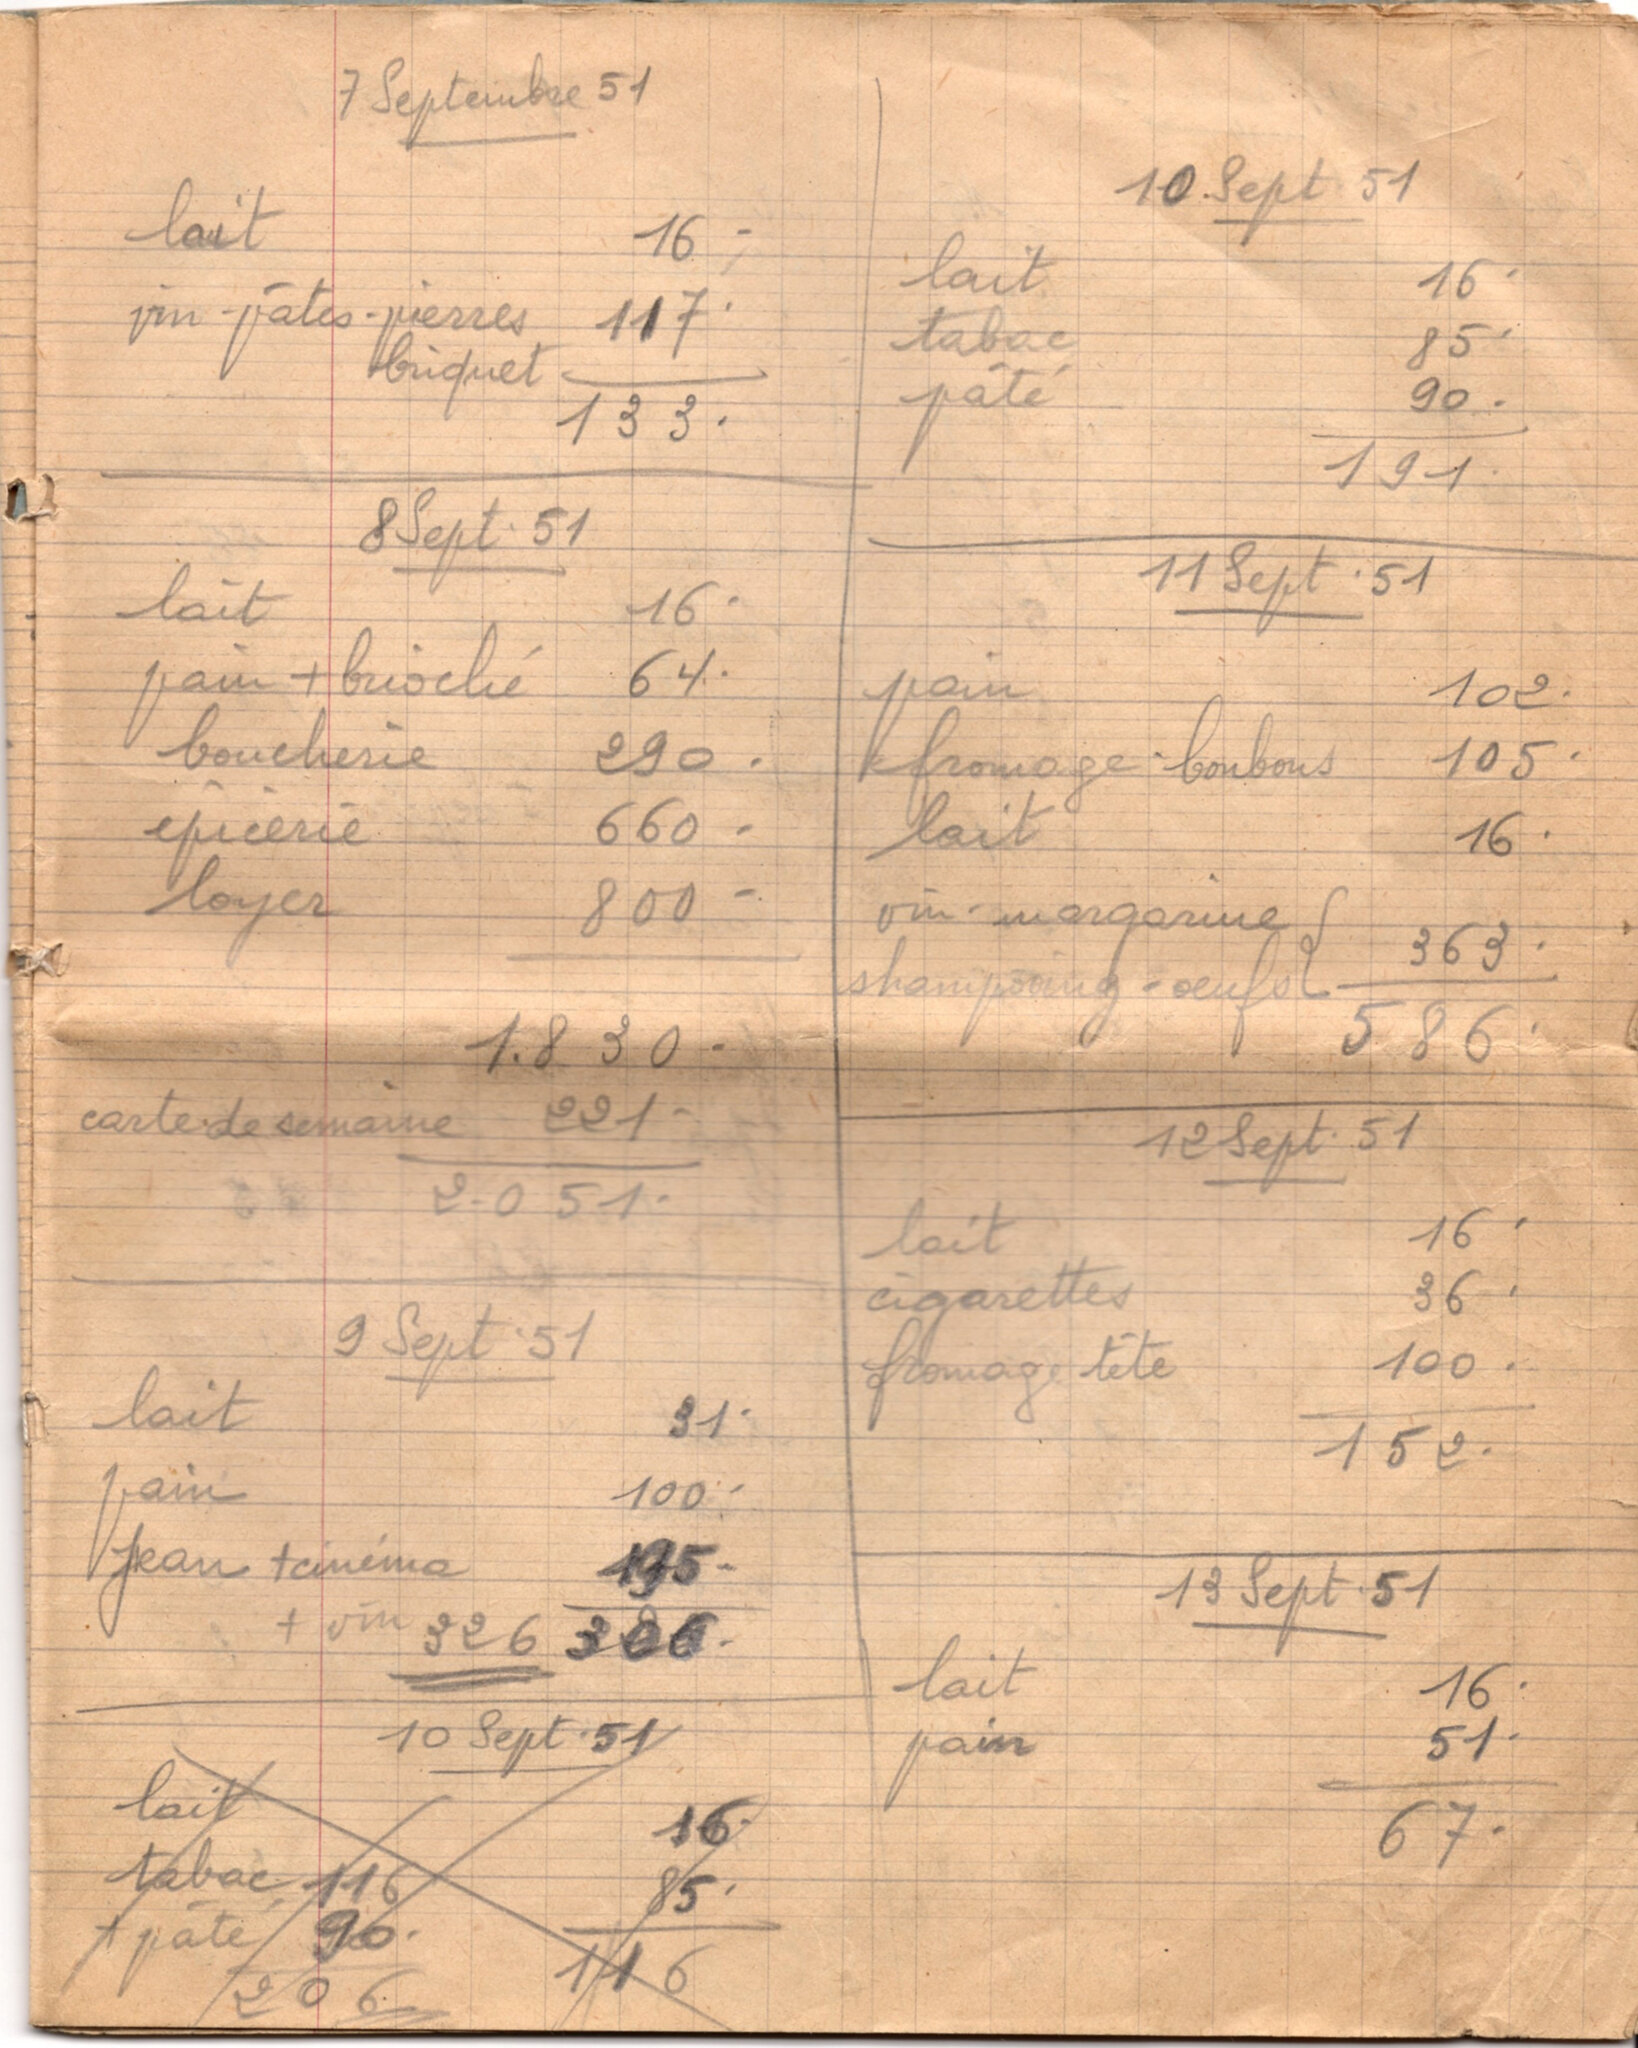 7 Septembre 51
lait 16.-
vin - pâtes - pierres 117.
briquet
133.
8 Sept. 51
lait 16.-
pain + brioché 64.
boucherie 290.
épicerie 660.-
loyer 800.-
1.830.-
carte de semaine 221.-
2.051.-
9 Sept. 51
lait 31.-
pain 100.-
Jean + cinéma 195.-
+ vin 326
10 Sept. 51
lait 16.
tabac 116 85.
+ pâté 90. 116
206
10 Sept 51
lait 16.
tabac 85.
pâté 90.
191.
11 Sept. 51
pain 102.
fromage - bonbons 105.
lait 16.
vin - margarine
shampooing - oeufs 363.
586.
12 Sept. 51
lait 16.
cigarettes 36.
fromage tête 100.
152.
13 Sept. 51
lait 16.
pain 51.
67.